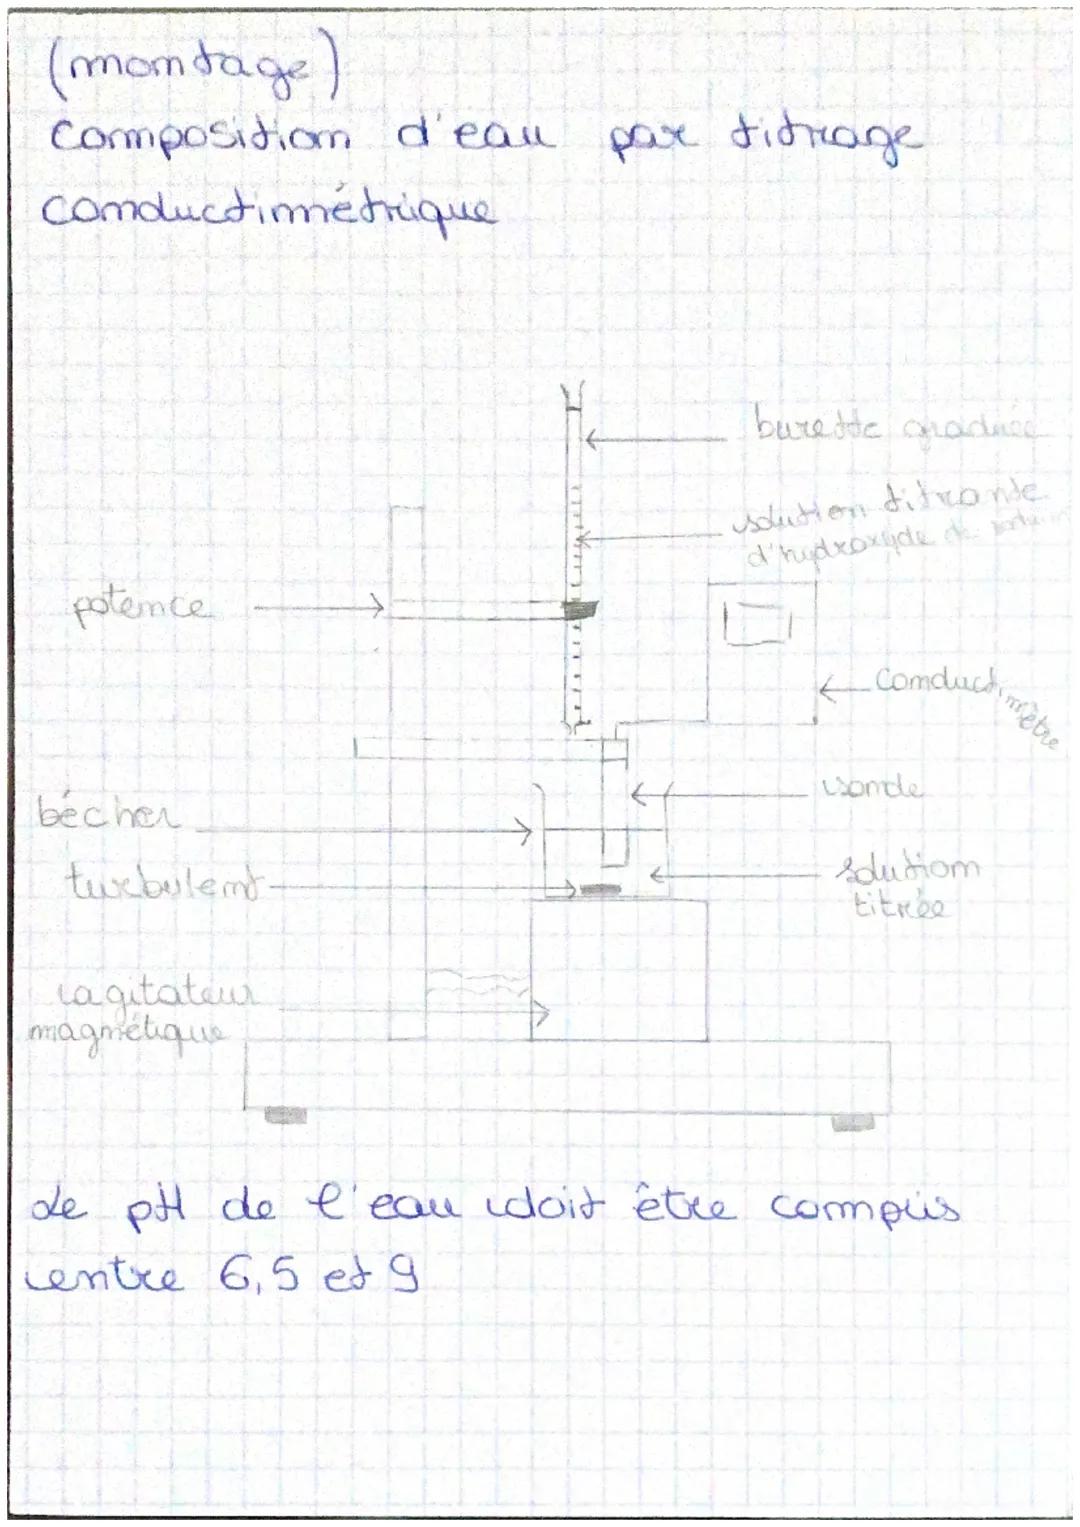 (montage)
Composition d'eau par titrage
conductimétrique
burette graduée
solution titrante
d'hydroxyde de sodium
potence
Conductimètre
sonde
bécher
turbulent
solution
titrée
agitateur
magnétique
Le pH de l'eau doit être compris
entre 6,5 et 9